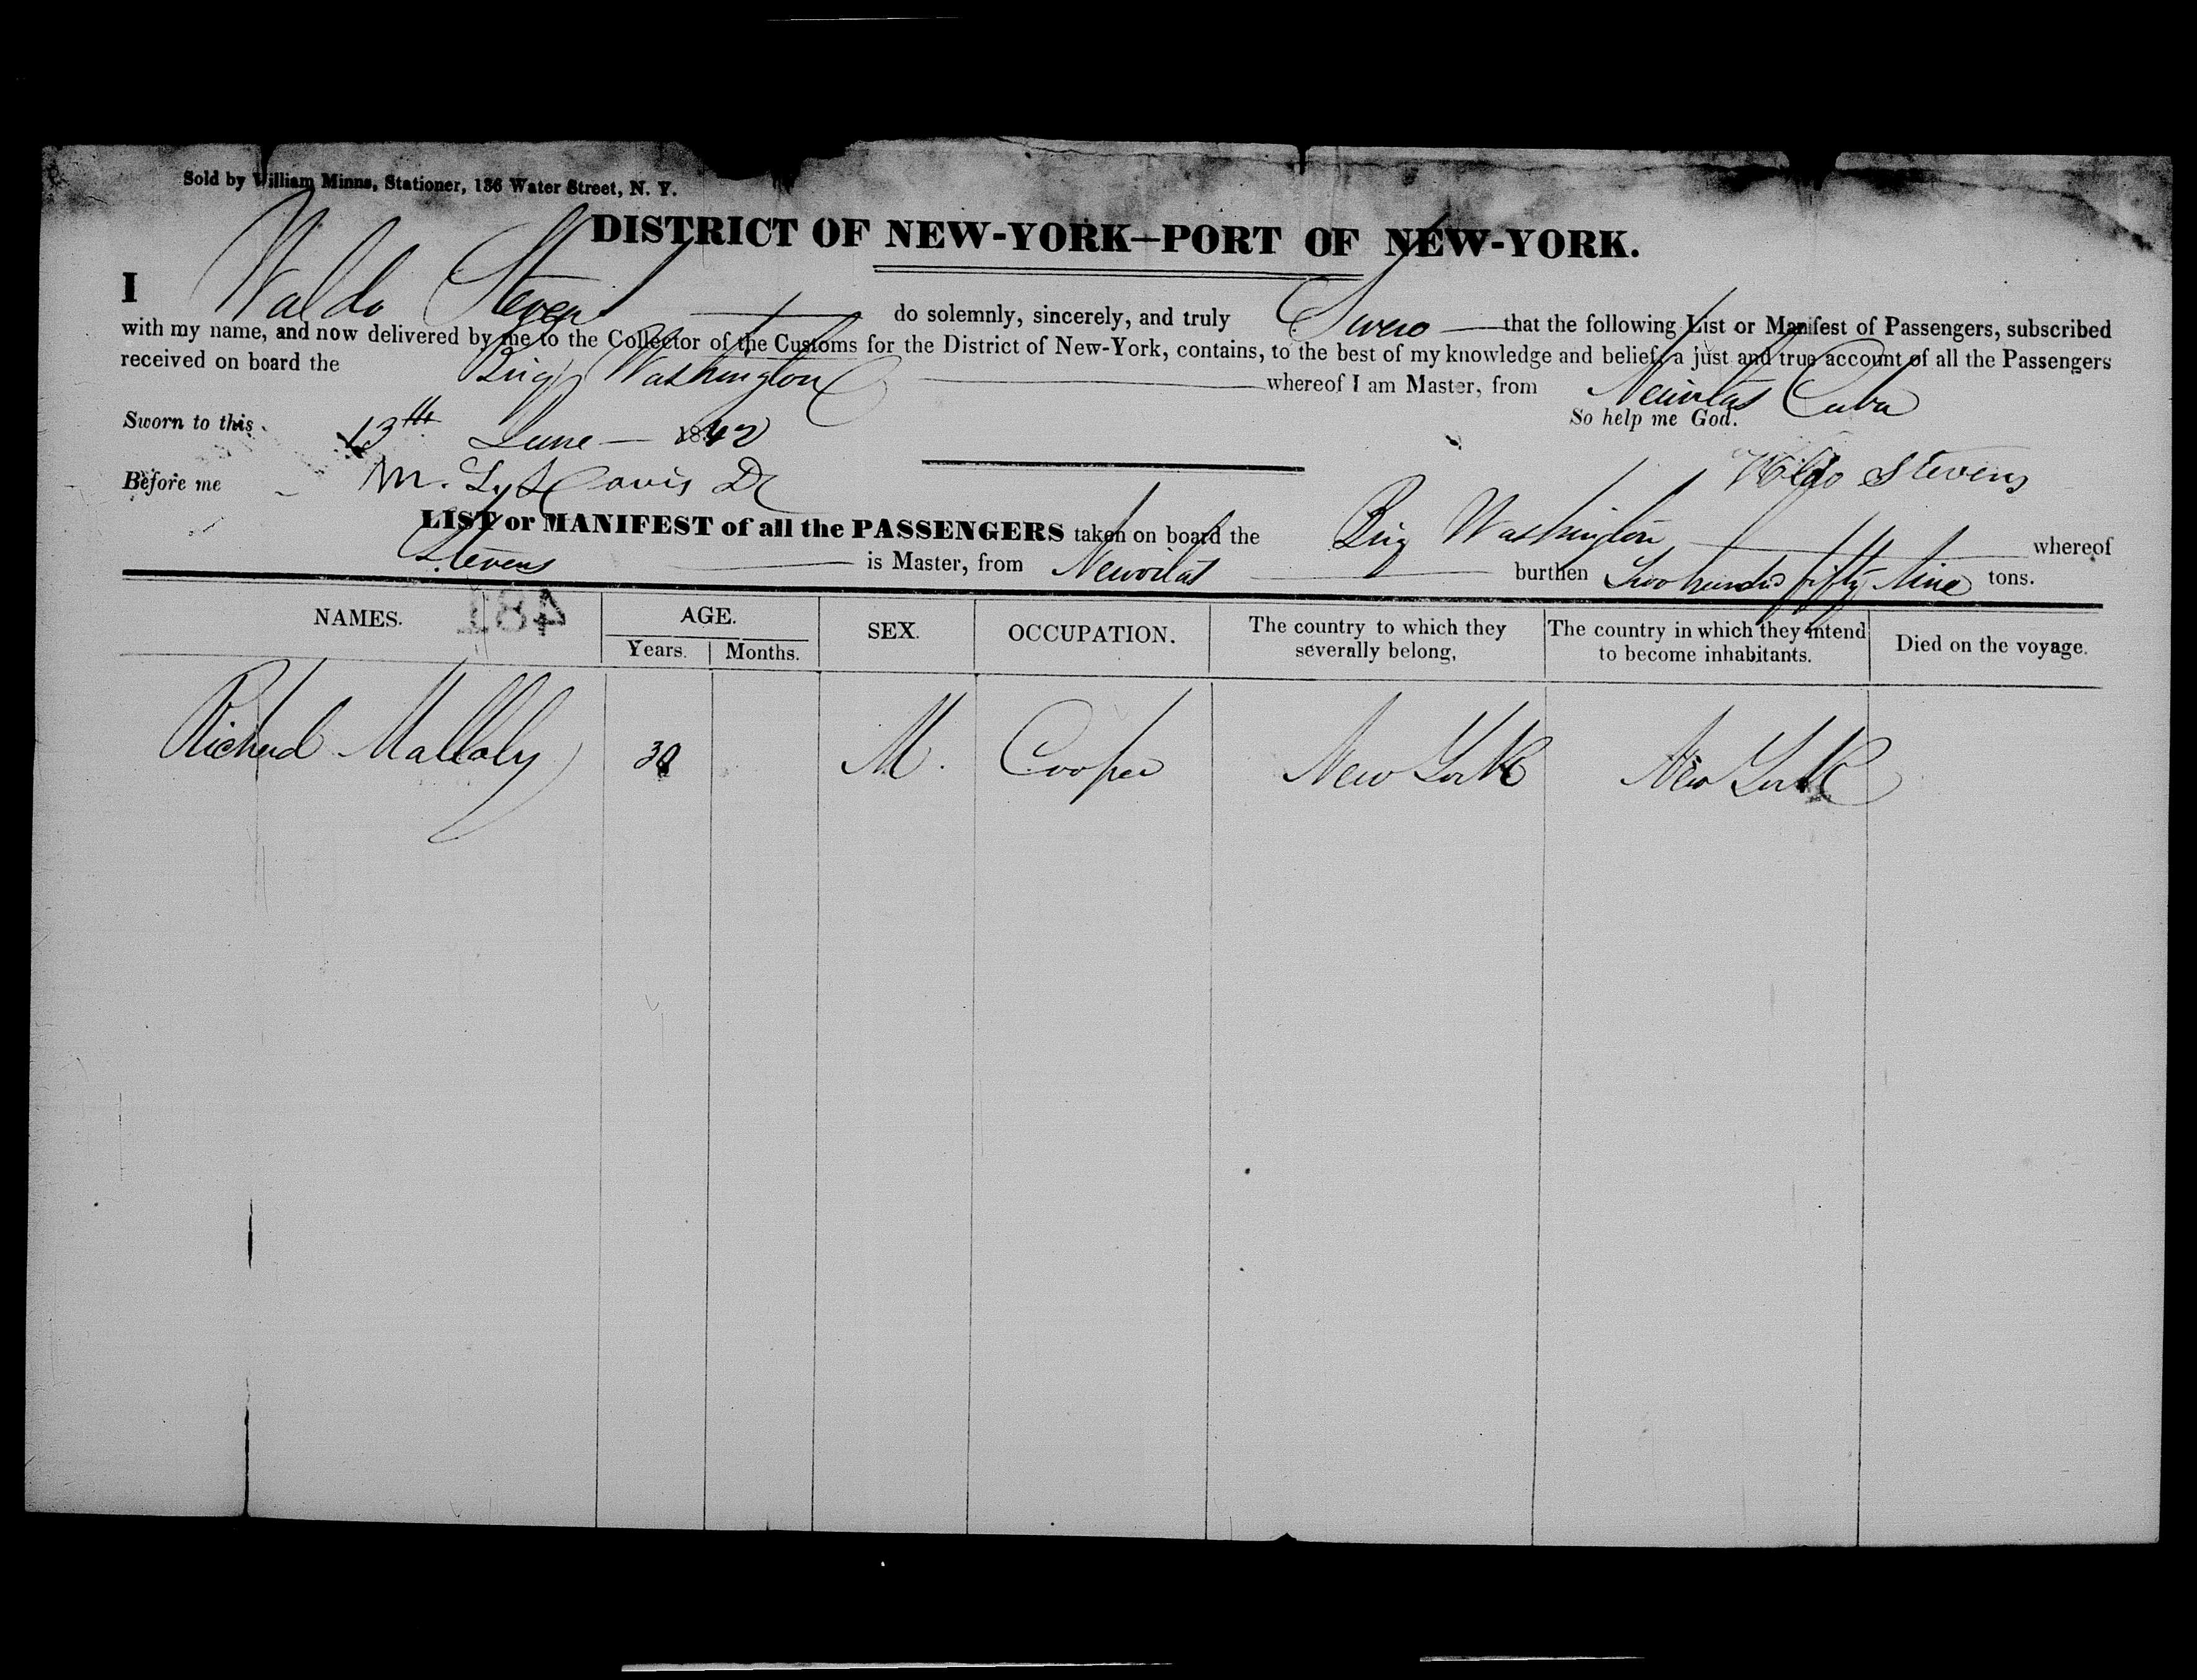 Sold by William Minns, Stationer, 136 Water Street, N. Y.
DISTRICT OF NEW-YORK—PORT OF NEW-YORK.
I Waldo Stevens do solemnly, sincerely, and truly Swear that the following List or Manifest of Passengers, subscribed
with my name, and now delivered by me to the Collector of the Customs for the District of New-York, contains, to the best of my knowledge and belief, a just and true account of all the Passengers
received on board the Brig Washington whereof I am Master, from Neuvitas Cuba
So help me God.
Sworn to this 13th June 1842
Waldo Stevens
Before me M. L. Davis
LIST or MANIFEST of all the PASSENGERS taken on board the Brig Washington whereof
Stevens is Master, from Newvitas burthen Two hundred fifty Nine tons.
481
NAMES. AGE. SEX. OCCUPATION. The country to which they severally belong, The country in which they intend to become inhabitants. Died on the voyage.
Years. Months.
Richard Mallaly 30 M. Cooper New York New York